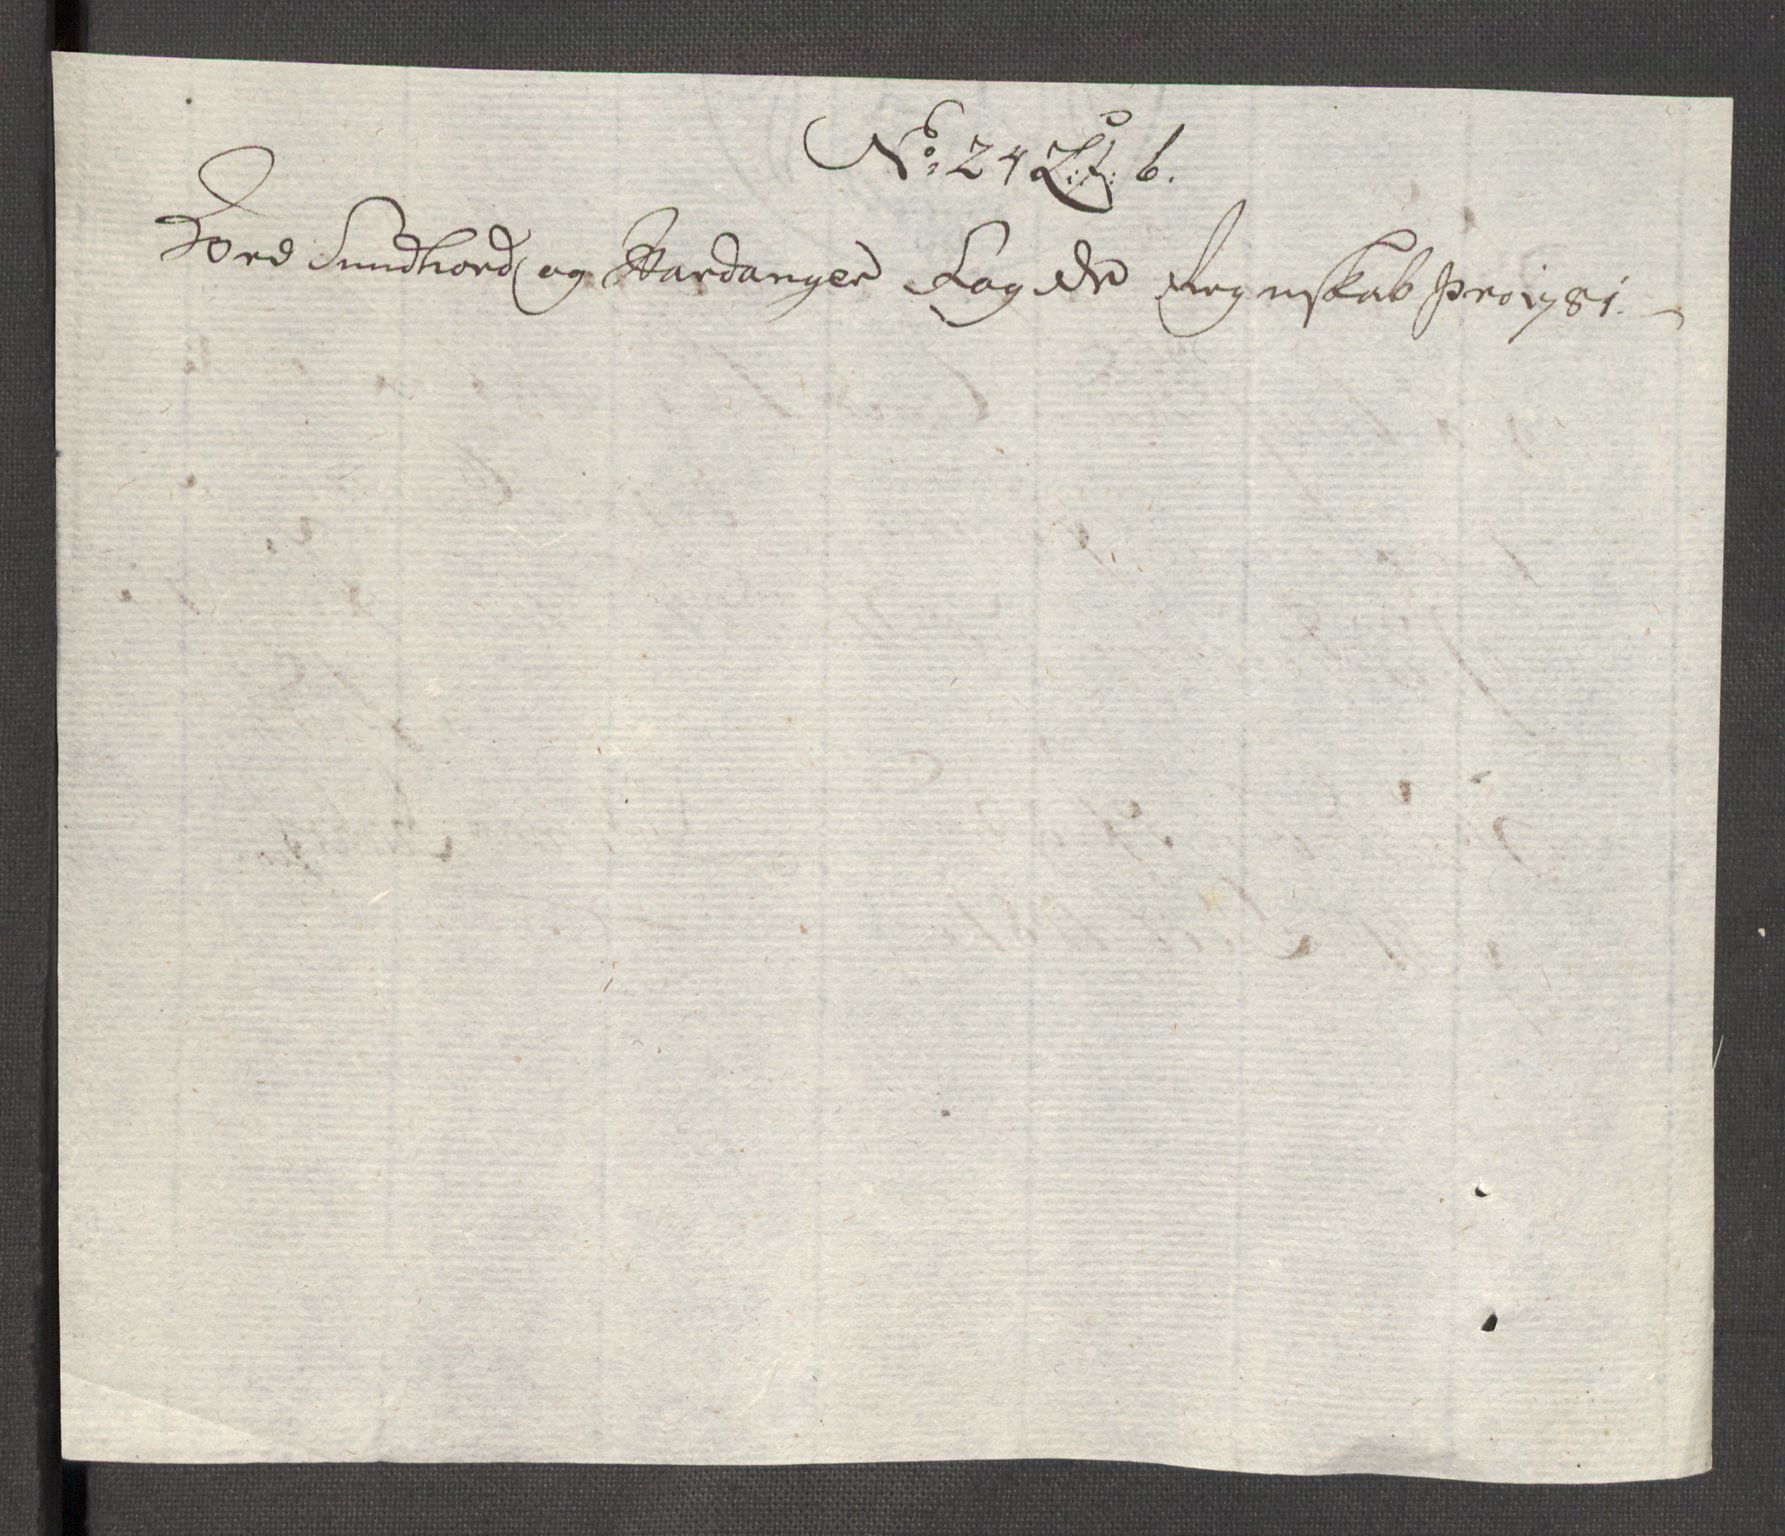 No: 24 L:f: b.
Nord Sundhord og Hardanger Fogdr Regnskab pro 1781.